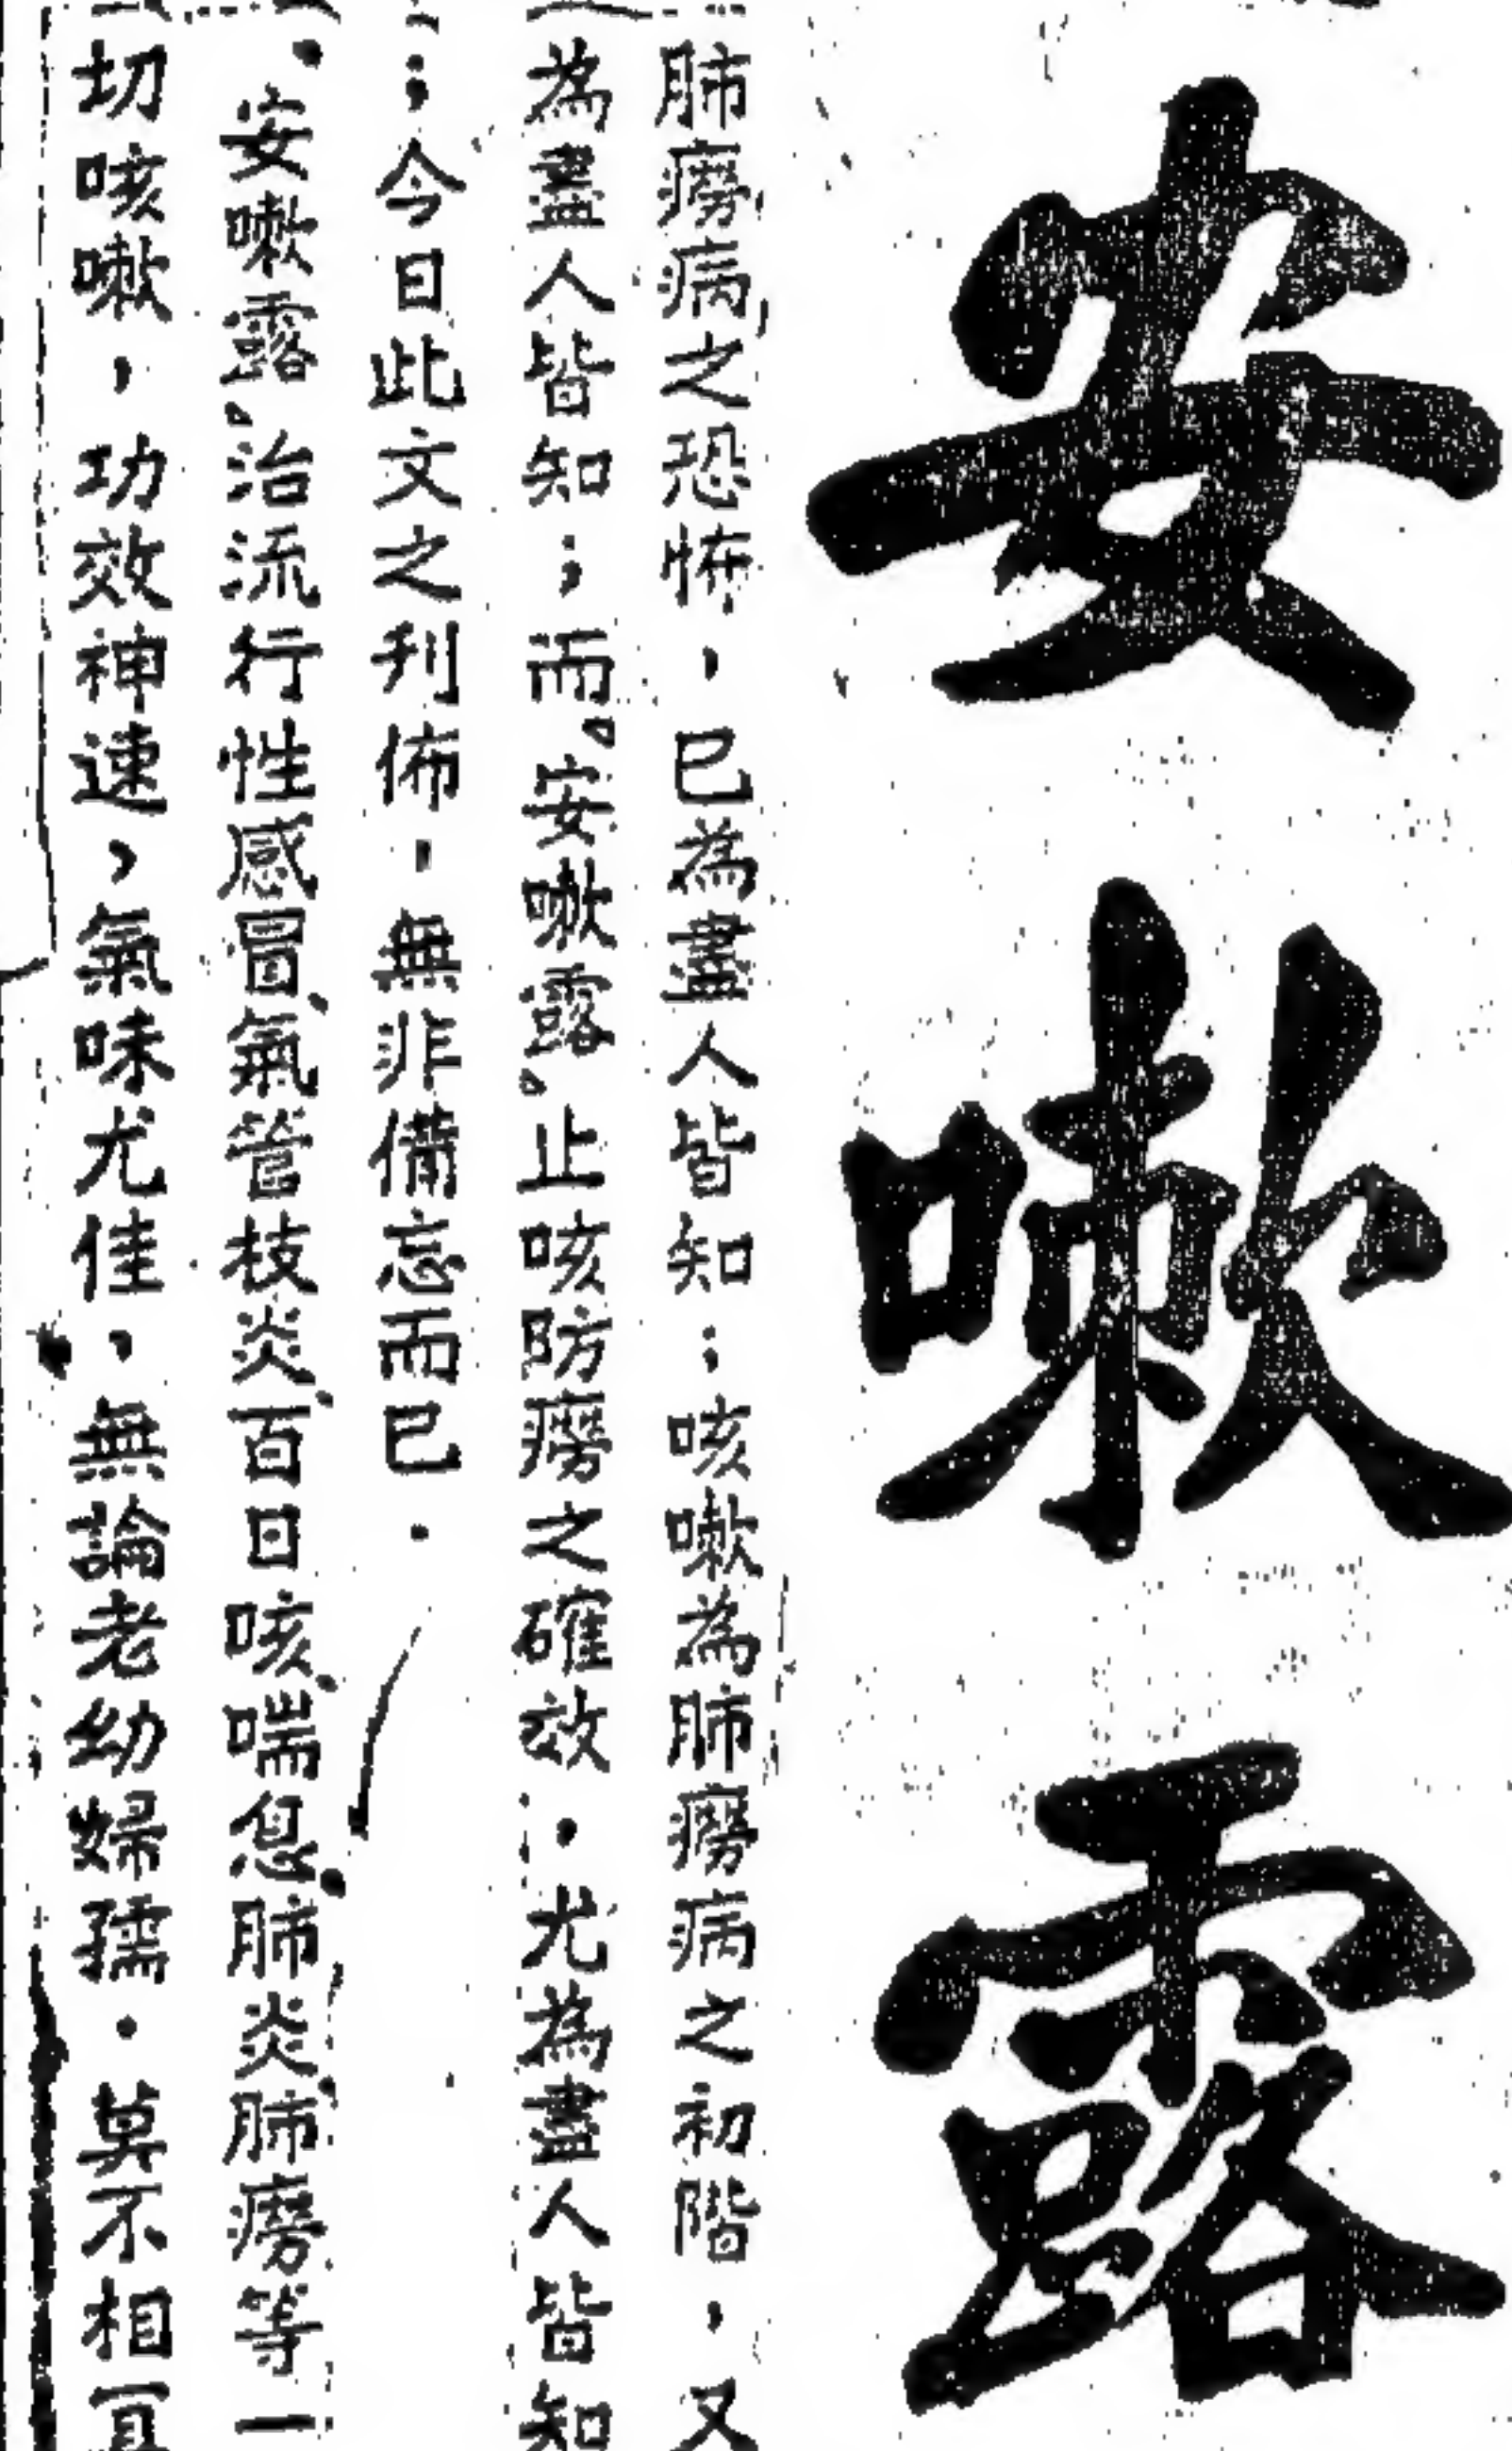 安嗽露
肺癆病之恐怖，已為盡人皆知；咳嗽為肺癆病之初階，又
為盡人皆知；而。安嗽露。止咳防癆之確效．尤為盡人皆知
；今日此文之刋佈，無非備忘而已．
。安嗽露。治流行性感冒、氣管枝炎、百日咳、喘息、肺炎、肺癆等一
切咳嗽，功效神速，氣味尤佳，無論老幼婦孺．莫不相宜